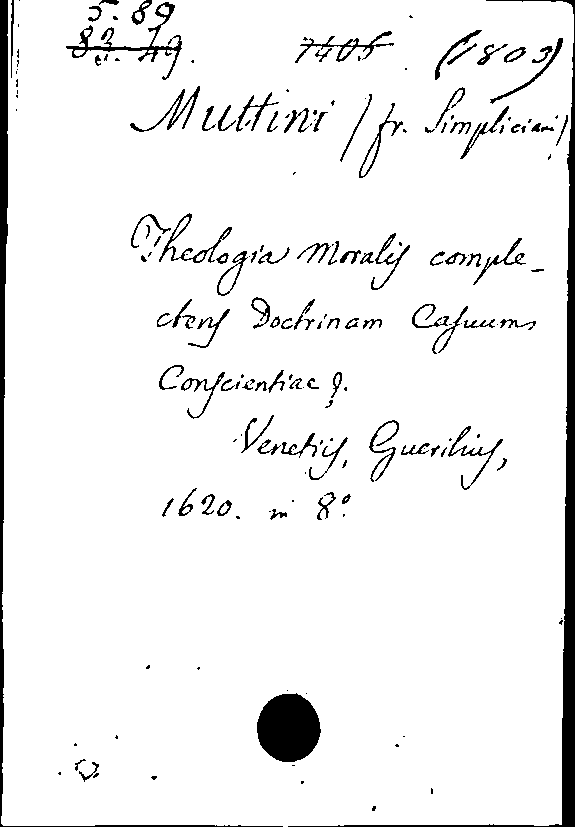 5. 89
83. 49. 7405 (1803)
Muttini / fr. Simpliciani /
Theologia Moralis comple-
ctens Doctrinam Casuum
Conscientiae &.
Venetiis, Guerilius,
1620. in 8°.